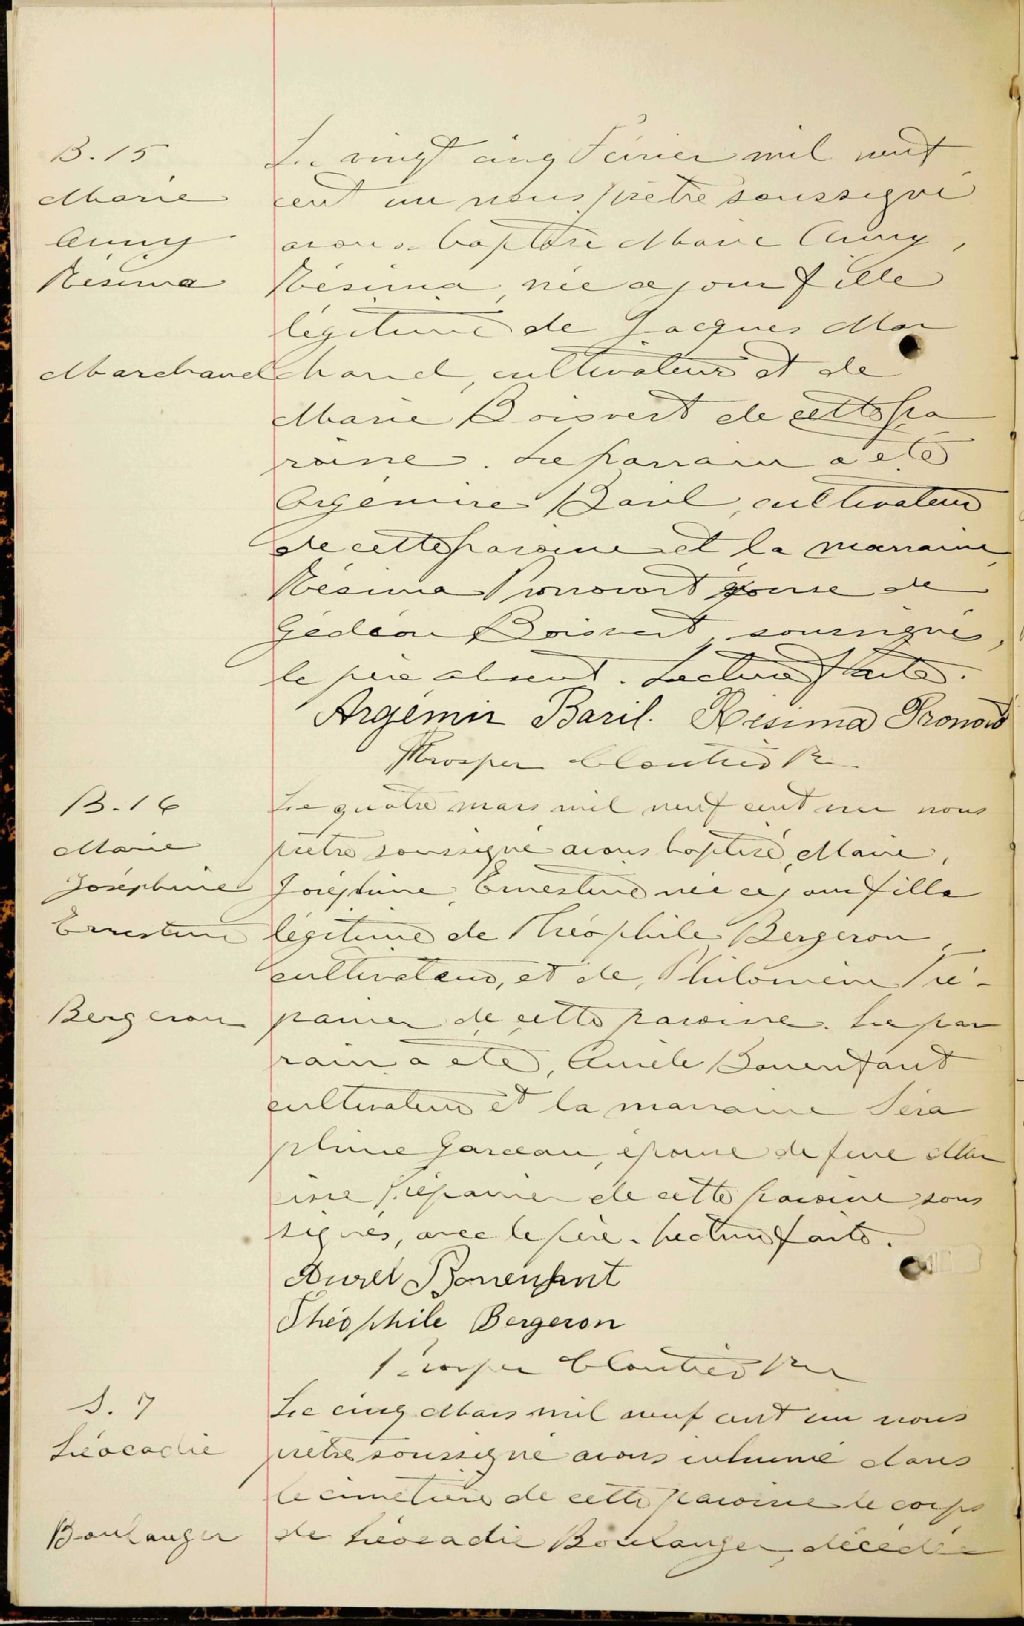 B. 15
Marie
Anny
Résima
Marchand
Le vingt cinq Février mil neuf
cent un nous prêtre soussigné
avons baptisé Marie Anny,
Résima, née ce jour fille
légitime de Jacques Mar
chand, cultivateur et de
Marie Boisvert de cette pa
roisse. Le parrain a été
Argémire Baril, cultivateur
de cette paroisse et la marraine
Résima Pronovost épouse de
Gédéon Boisvert, soussignés,
le père absent. Lecture faite.
Argémir Baril. Résima Pronovo
Prosper Cloutier Ptr
B. 16
Marie
Joséphine
Ernestine
Bergeron
Le quatre mars mil neuf cent un nous
prêtre soussigné avons baptisé, Marie,
Joséphine, Ernestine née ce jour fille
légitime de Théophile Bergeron,
cultivateur, et de, Philomène Tré-
panier de cette paroisse. Le par
rain a été, Aurèle Bonenfant
cultivateur et la marraine Séra
phine Garceau, épouse de feue Nar
cisse Trépanier de cette paroisse sous
signés, avec le père. Lecture faite.
Aurel Bonenfant
Théophile Bergeron
Prosper Cloutier Ptr
S. 7
Léocadie
Boulanger
Le cinq Mars mil neuf cent un nous
prêtre soussigné avons inhumé dans
le cimetière de cette paroisse le corps
de Léocadie Boulanger, décédée